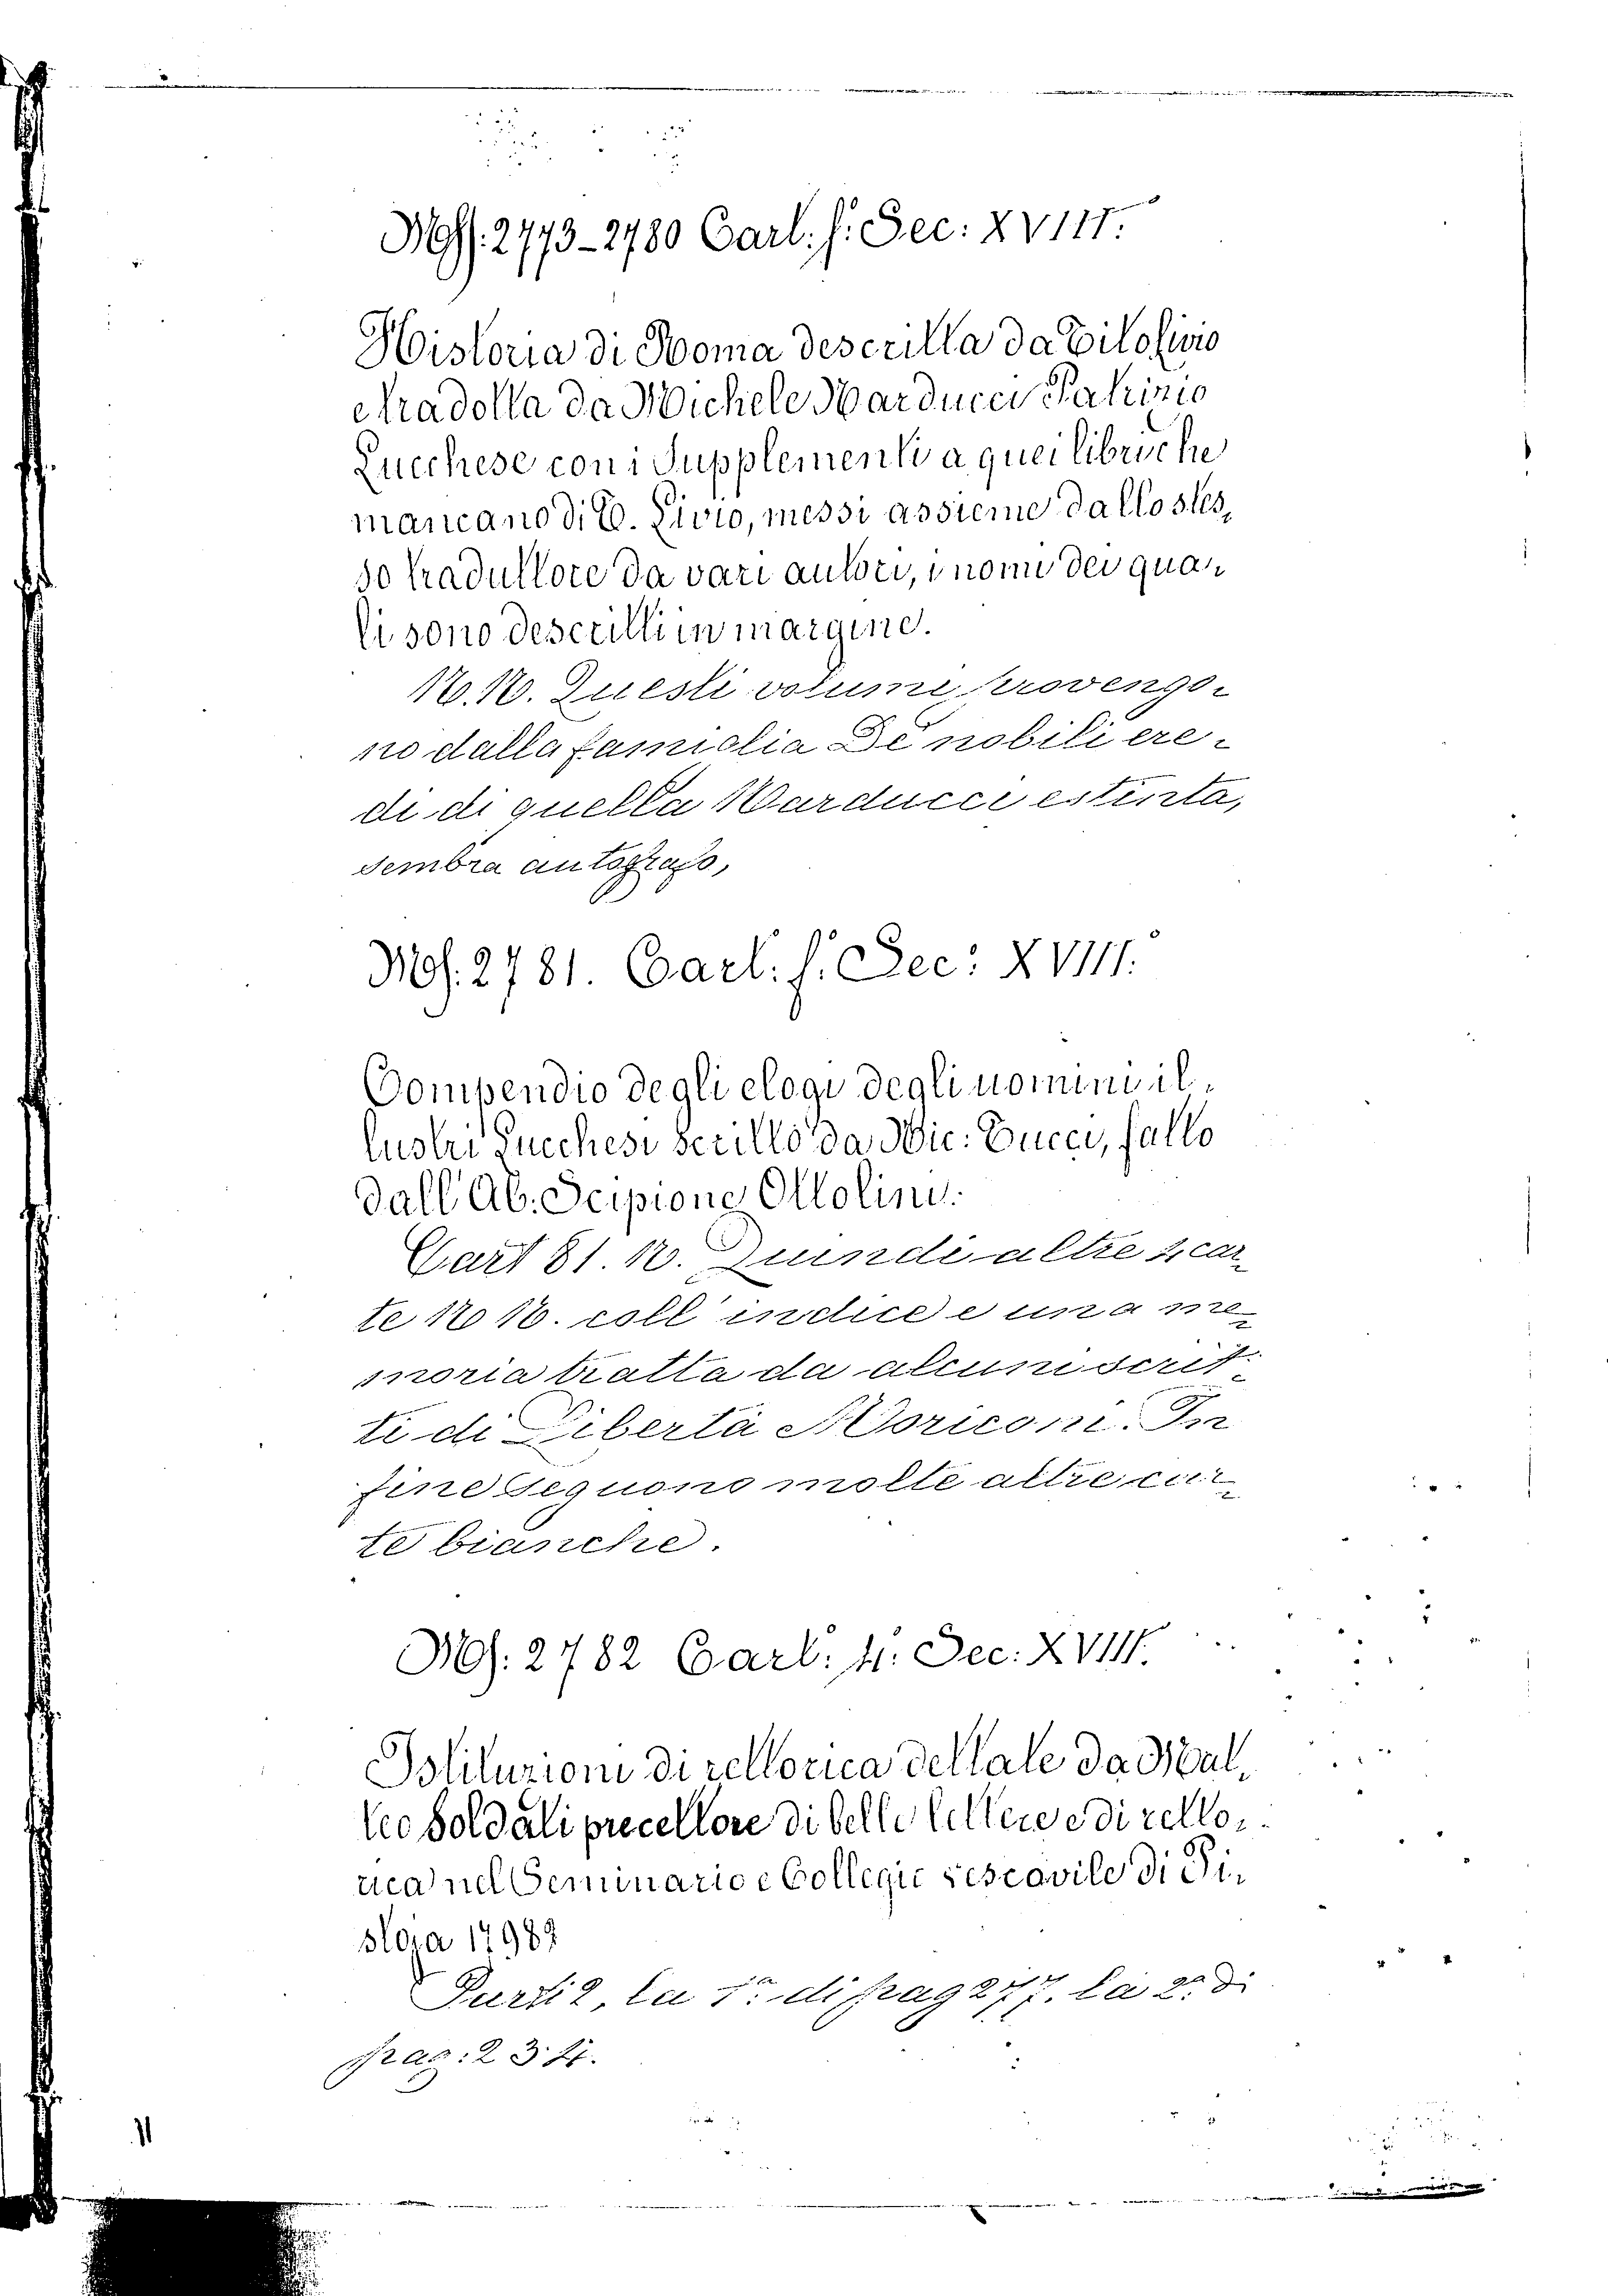 Mss. 2773-2780 Cart. f. Sec: XVIII.
Historia di Roma descritta da Tito Livio
e tradotta da Michele Narducci Patrizio
Lucchese con i Supplementi a quei libri che
mancano di T. Livio, messi assieme dallo stes-
so traduttore da vari autori, i nomi dei qua-
li sono descritti in margine.
N.N. Questi volumi provengo-
no dalla famiglia De nobili ere-
di di quella Narducci estinta,
sembra autografo,
Ms. 2781. Cart. f. Sec: XVIII.
Compendio degli elogi degli uomini il-
lustri Lucchesi scritto da Nic: Tucci, fatto
dall' Ab. Scipione Ottolini.
Cart 81. N. Quindi altre 4 car-
te N N. coll' indice e una me-
moria tratta da alcuni scrit-
ti di Libertà Moriconi. In
fine seguono molte altre car-
te bianche.
Ms: 2782 Cart: 4. Sec: XVIII.
Istituzioni di rettorica dettate da Mat-
teo Soldati precettore di belle lettere e di retto-
rica nel Seminario e Collegio vescovile di Pi-
stoja 1798
Parti 2, la 1a. di pag 277. La 2a. di
pag: 234.